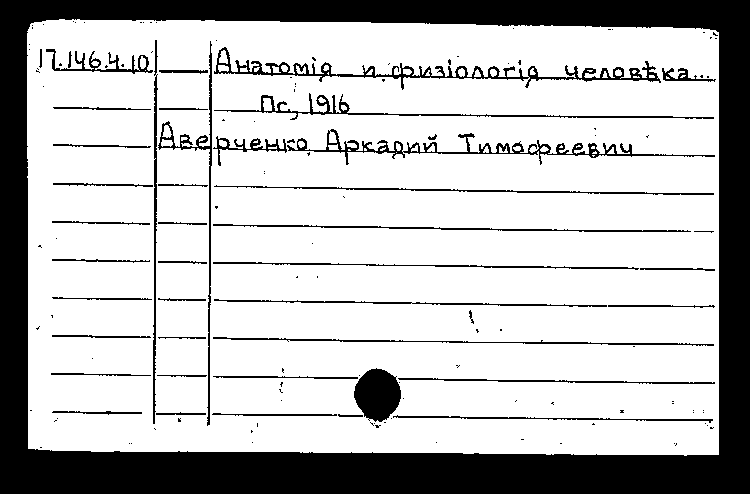 17.146.4.10 Анатомія и физіологія человѣка...
Пс, 1916
Аверченко Аркадий Тимофеевич